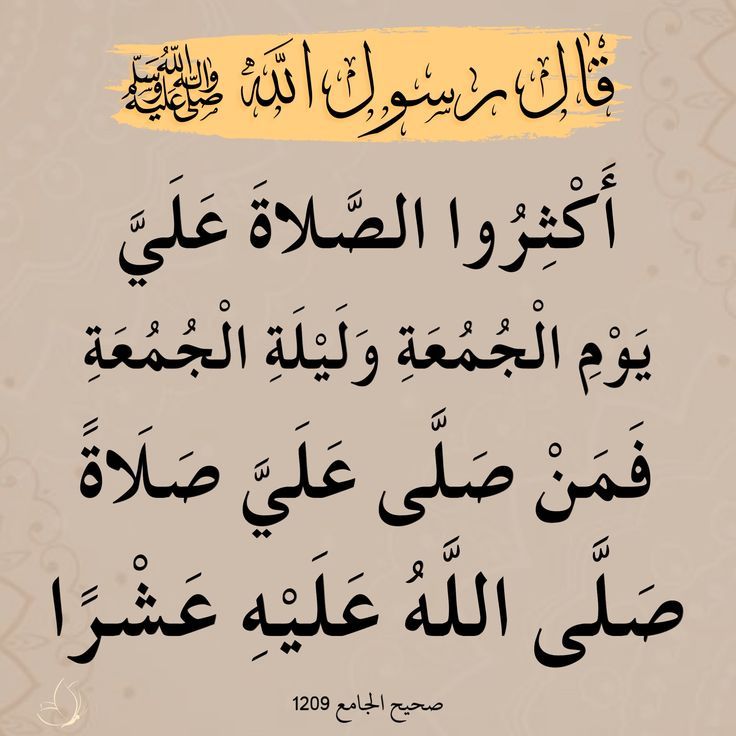 قال رسول الله ﷺ
أَكْثِرُوا الصَّلاةَ عَلَيَّ
يَوْمِ الْجُمُعَةِ وَلَيْلَةِ الْجُمُعَةِ
فَمَنْ صَلَّى عَلَيَّ صَلَاةً
صَلَّى اللَّهُ عَلَيْهِ عَشْرًا
صحيح الجامع 1209